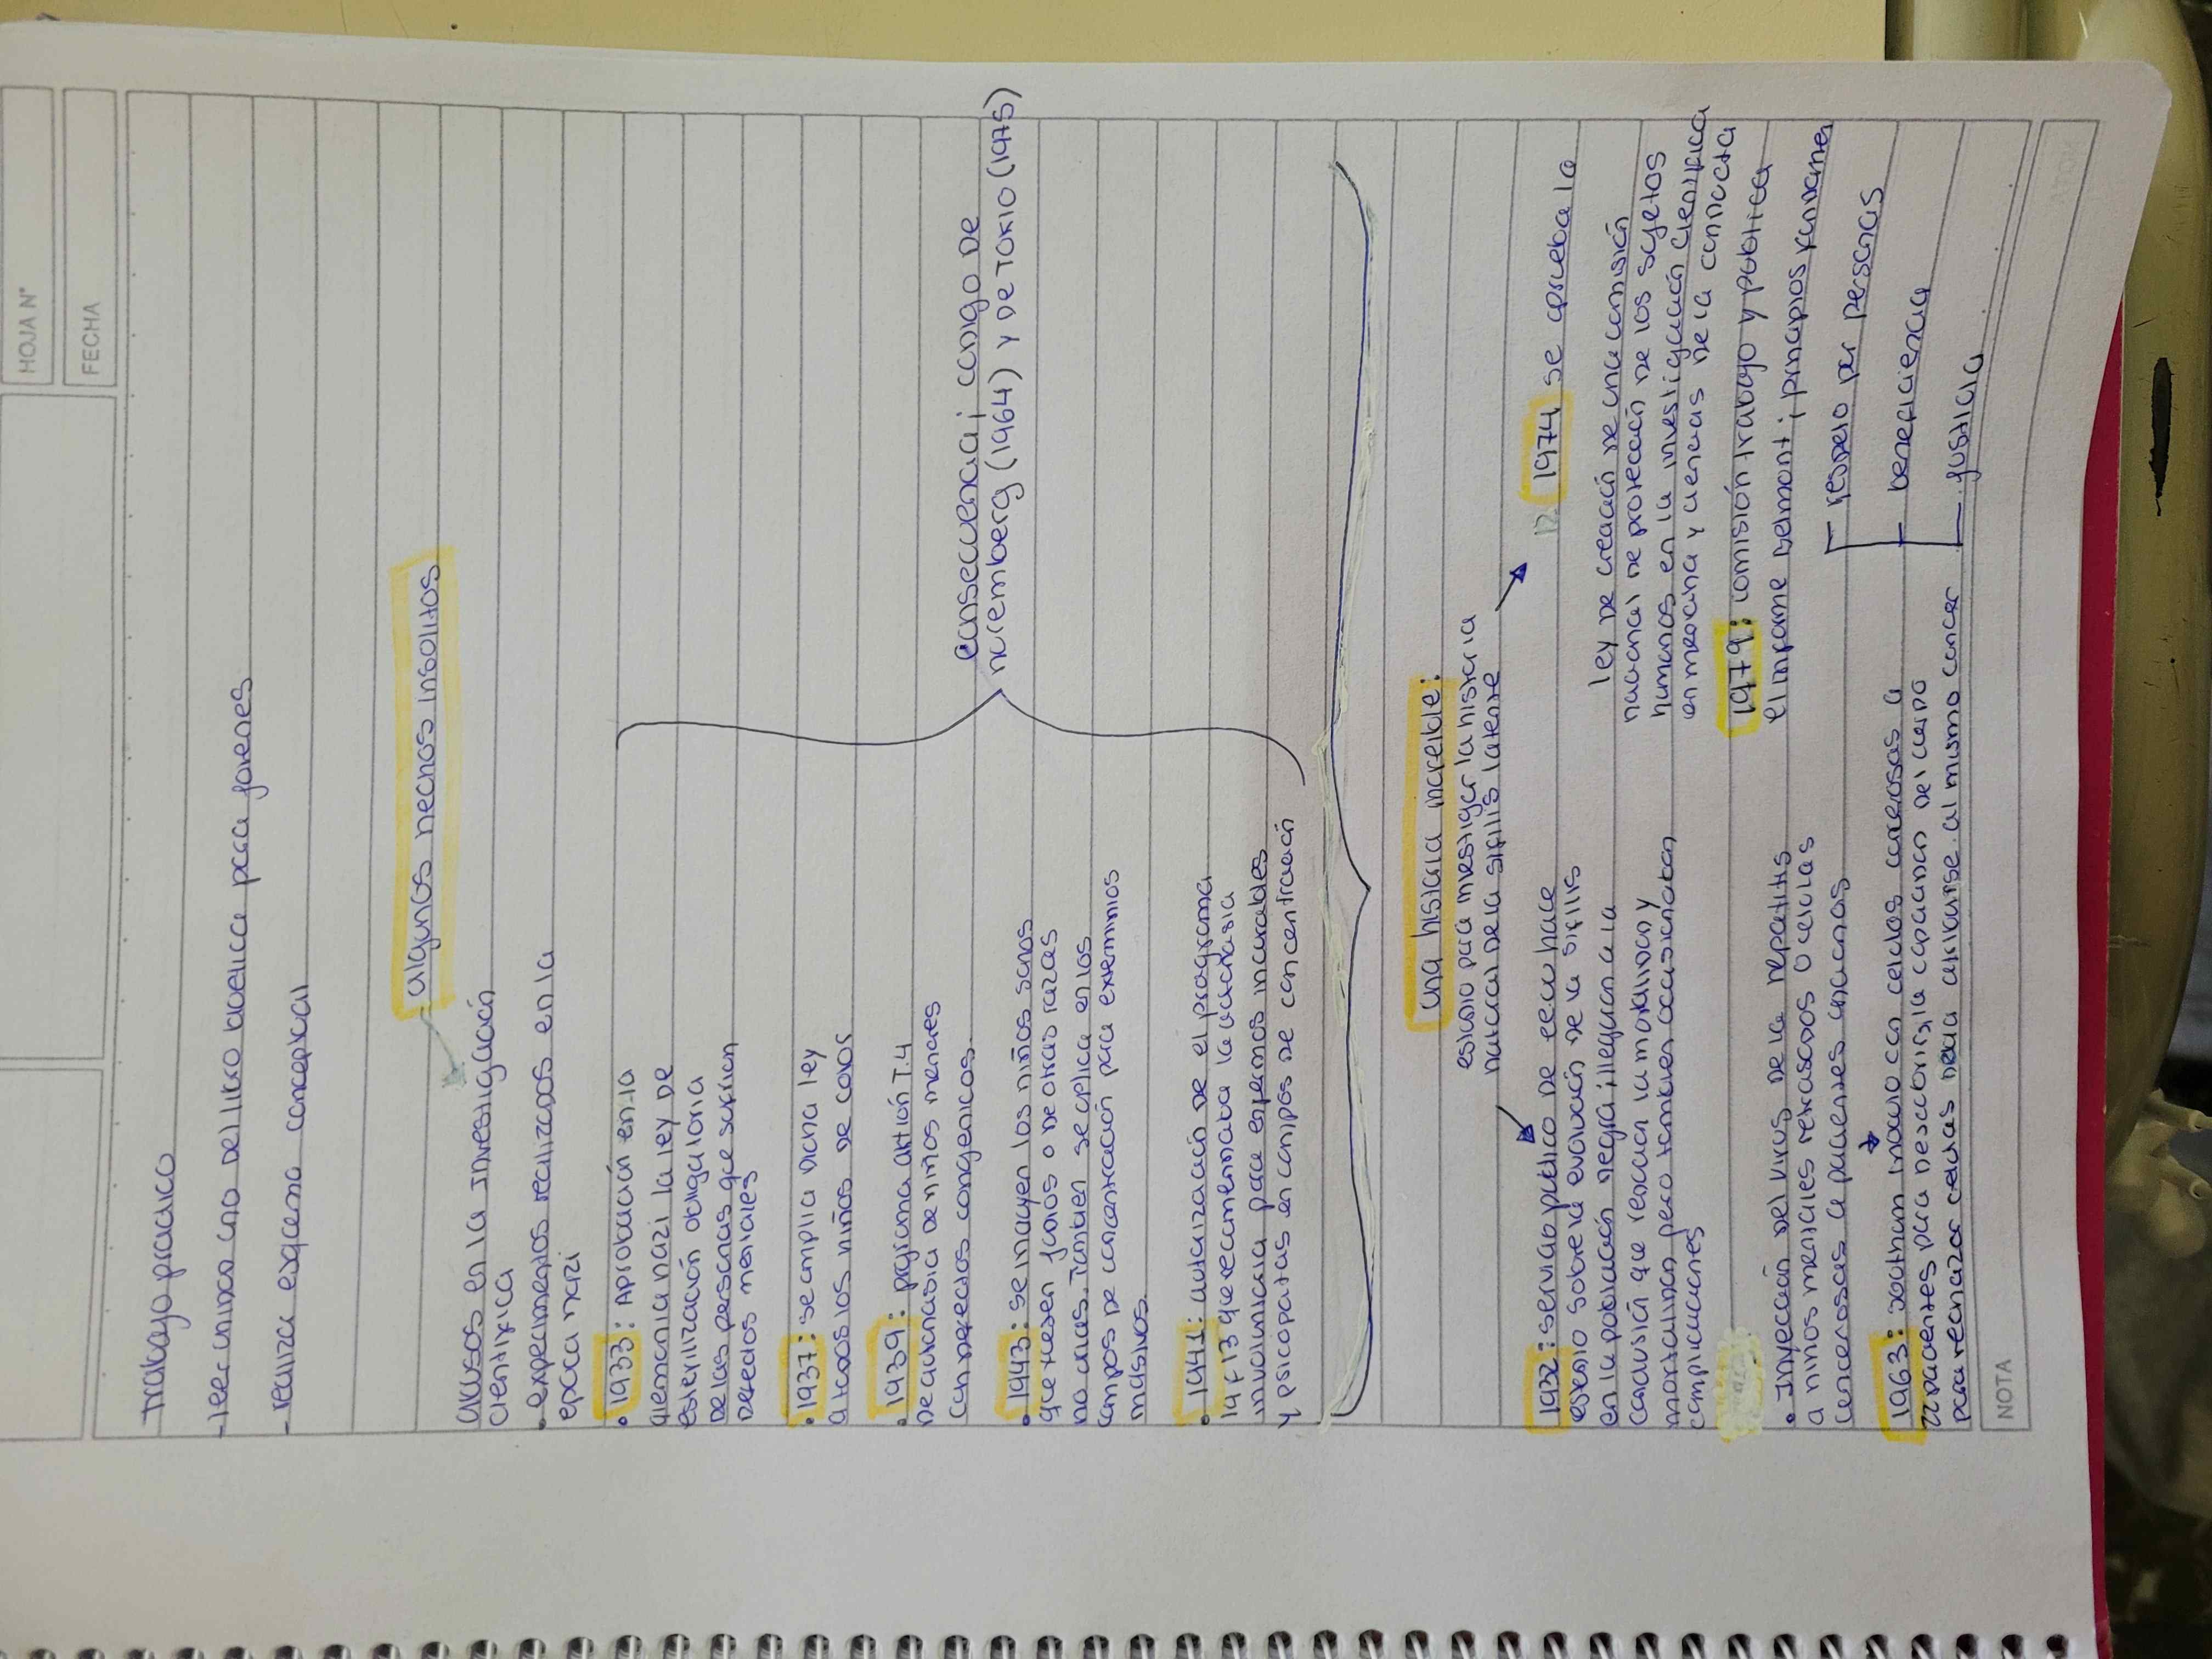 HOJA N°
FECHA
Trabajo practico
-leer unidad uno del libro bioetica para jovenes
-realiza esquema conceptual
algunos hechos insolitos
abusos en la investigación
cientifica
• experimentos realizados en la
epoca nazi
• 1933: Aprobación en la
alemania nazi la ley de
esterilización obligatoria
de las personas que sufrían
defectos mentales
• 1937: se amplia dicha ley
a todos los niños de color
• 1939: programa aktión T.4
de eutanasia de niños menores
con defectos congenicos.
• 1943: se incluyen los niños sanos
que fuesen judios o de otras razas
no arias. Tambien se aplica en los
campos de concentración para exterminios
masivos.
• 1941: autorización de el programa
14 f 13 que recomendaba la eutanasia
involuntaria para enfermos incurables
y psicopatas en campos de concentración
consecuencia; codigo de
nuremberg (1964) y de TOKIO (1975)
una historia increible:
estudio para investigar la historia
natural de la sifilis latente
1932: servicio publico de eeuu hace
estudio sobre la evolución de la sifilis
en la población negra; llegaron a la
conclusión que reducian la morbilidad y
mortalidad pero tambien ocasionaban
complicaciones
• Inyección del virus de la hepatitis
a niños mentales retrasados o celulas
cancerosas a pacientes ancianos
1963: southam inoculo con celulas cancerosas a
22 pacientes para descubrir; la capacidad del cuerpo
para rechazar celulas debia utilizarse al mismo cancer
1974 se aprueba la
ley de creación de una comisión
nacional de protección de los sujetos
humanos en la investigación cientifica
en medicina y ciencias de la conducta
1979: comisión trabajo y publica
el informe Belmont; principios fundamen
respeto por personas
beneficiencia
justicia
NOTA